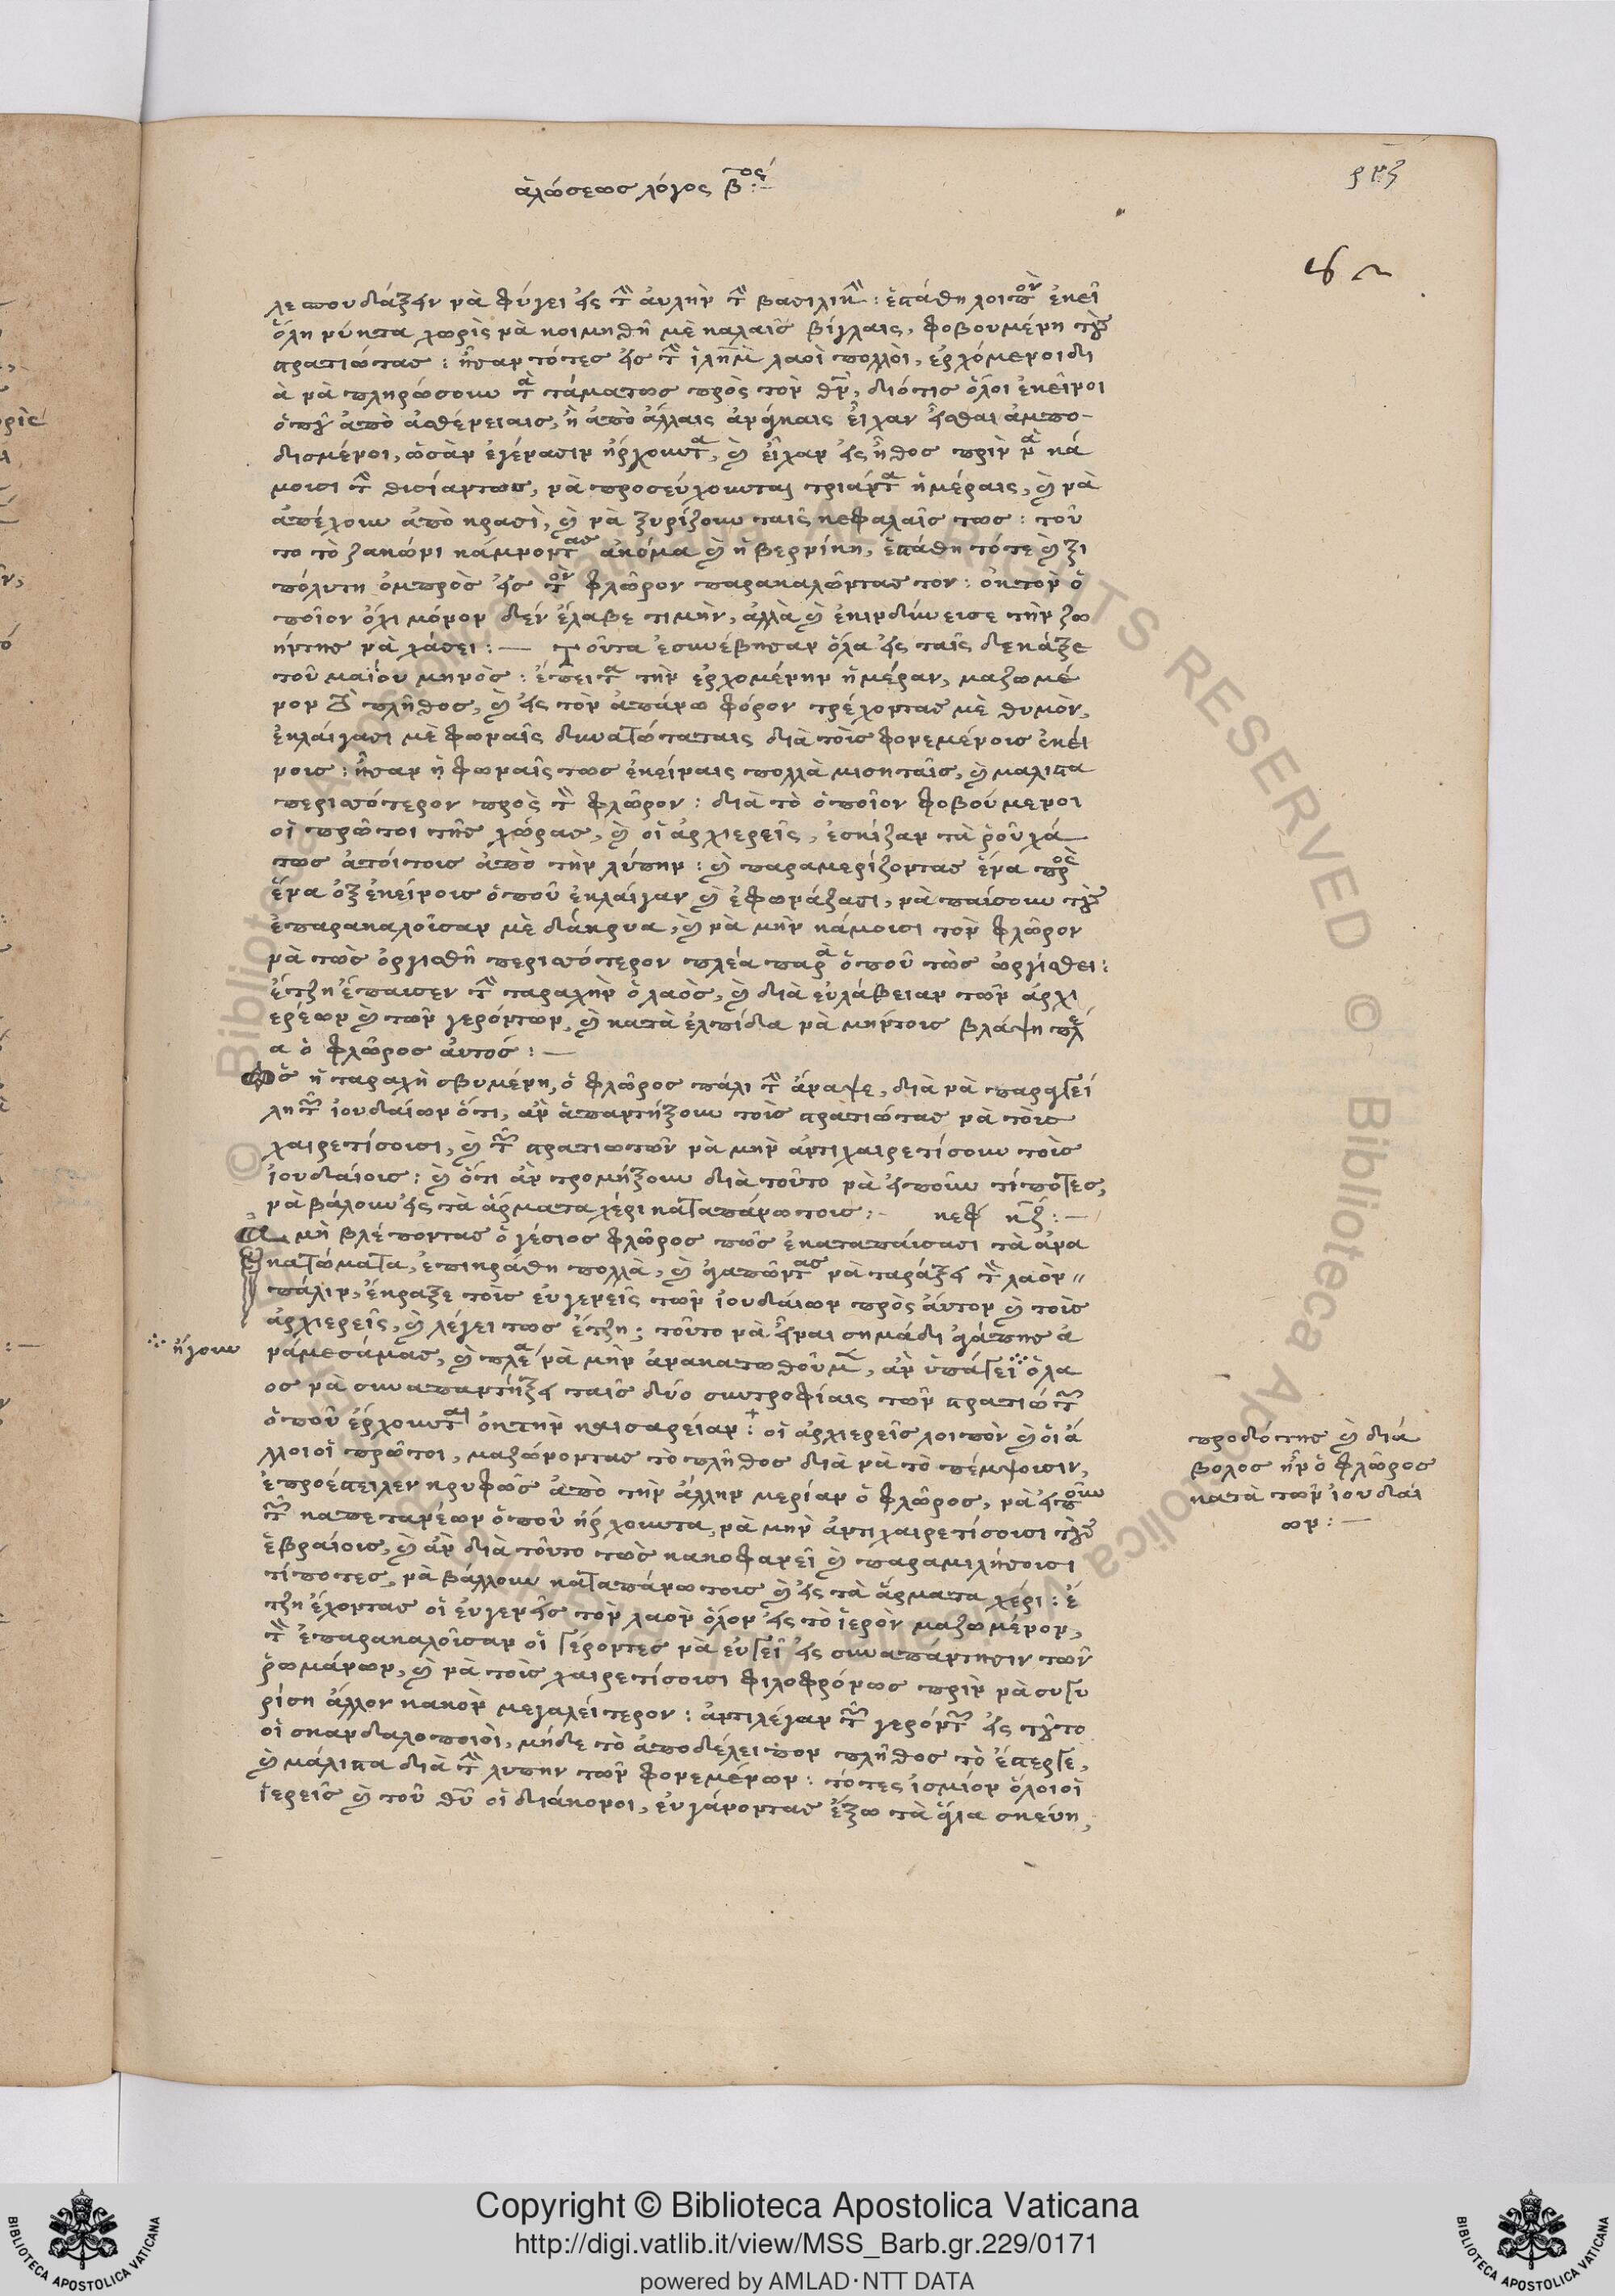 ἁλώσεως λόγος βος:-
λεπουδιάξην νὰ φύγει εἰς τὴν ἀυλὴν τὴν βασιλικὴν: ἐστάθη λοιπὸν ἐκεῖ
ὅλη νύκτα χωρὶς νὰ κοιμηθῆ μὲ καλαῖς βίγλαις, φοβουμένη τοὺς
στρατιώτας: ἦσαν τότες εἰς τὴν ἱλὴμ λαοὶ πολλοὶ, ἐρχόμενοι δι
ὰ νὰ πληρώσουν τὰ τάματατως πρὸς τὸν θν, διότις ὅλοι ἐκεῖνοι
ὁποῦ ἀπὸ ἀσθένειαις, ἢ ἀπὸ ἄλλαις ἀνάγκαις εἶχαν εἶσθαι ἀμπο-
δισμένοι, ὡσὰν ἐγέρασιν ἤρχουντα, καὶ εἶχαν εἰς ἦθος πρὶν νὰ κά
μουσι τὴν θισίαντως, νὰ προσεύχουνται τριάντα ἡμέραις, καὶ νὰ
ἀπέχουν ἀπὸ κρασὶ, καὶ νὰ ξυρίζουν ταῖς κεφαλαῖς τως: τοῦ
το τὸ ζακώνι κάμνοντας ἀκόμα καὶ ἡ βερνίκη, ἐστάθη τότε καὶ ξι
πόλυτη ὀμπρὸς εἰς τὸν φλῶρον παρακαλῶντας τον: ὀκτὸν ὁ
ποῖον ὄχι μόνον δὲν ἔλαβε τιμὴν, ἀλλὰ καὶ ἐκινδύνεισε τὴν ζω
ήντης νὰ χάσει:— Τοῦτα ἐσυνέβησαν ὅλα εἰς ταῖς δεκάξε
τοῦ μαΐου μηνὸς: ἔπειτα τὴν ἐρχομένην ἡμέραν, μαζωμέ
νον τὸ πλῆθος, καὶ εἰς τὸν ἀπάνω φόρον τρέχοντας μὲ θυμὸν,
ἐκλαίγασι μὲ φωναῖς δυνατώταταις διὰ τοὶς φονεμένοις ἐκεί
νοις: ἦσαν ἡ φωναῖς τως ἐκείναις πολλὰ μισηταῖς, καὶ μάλιστα
περισσότερον πρὸς τὸν φλῶρον: διὰ τὸ ὁποῖον φοβούμενοι
οἱ πρῶτοι τῆς χώρας, καὶ οἱ ἀρχιερεῖς, ἐσκίζαν τὰ ῥοῦχά
τως ἀτοίτοις ἀπὸ τὴν λύπην: καὶ παραμερίζοντας ἕνα πρὸς
ἕνα ὀξ ἐκείνοις ὁποῦ ἐκλαίγαν καὶ ἐφωνάζασι, νὰ παίσουν τοὺς
ἐπαρακαλοῦσαν μὲ δάκρυα, καὶ νὰ μὴν κάμουσι τὸν φλῶρον
νὰ τὼς ὀργισθῆ περισσότερον πλέα παρὰ ὁποῦ τὼς ὠργίσθει:
ἔτζη ἔπαυσεν τὴν ταραχὴν ὁ λαὸς, καὶ διὰ εὐλάβειαν τῶν ἀρχι
ερέων καὶ τῶν γερόντων, καὶ κατὰ ἐλπίδα νὰ μήντοις βλάψη πλέ
α ὁ φλῶρος ἀυτός:—
ὡς ἡ ταραχὴ σβυμένη, ὁ φλῶρος πάλι τὴν ἄναψε, διὰ νὰ παραγγεί
λη τῶν ἰουδαίων ὅτι, ἂν ἀπαντήξουν τοὶς στρατιώτας νὰ τοὶς
χαιρετίσουσι, καὶ τῶν στρατιωτῶν νὰ μὴν ἀντιχαιρετίσουν τοὶς
ἰουδαίοις: καὶ ὅτι ἂν τρομήξουν διὰ τοῦτο νὰ εἰποῦν τίποτες,
νὰ βάλουν εἰς τὰ ἅρματα χέρι καταπάνωτοις:- κεφ κζ:—
Μὴ βλέποντας ὁ γέσιος φλῶρος πῶς ἐκαταπαύσασι τὰ ἀνα
κατώματα, ἐπικράθη πολλὰ, καὶ ἀγαπῶντας νὰ ταράξη τὸν λαὸν
πάλιν, ἔκραξε τοὶς εὐγενεῖς τῶν ἰουδαίων πρὸς ἀυτὸν καὶ τοὶς
ἀρχιερεῖς, καὶ λέγει τως ἔτζη: τοῦτο νὰ εἶναι σημάδι ἀγάπης ἀ
νάμεσάμας, καὶ πλέα νὰ μὴν ἀνακατωθοῦμε, ἂν ὑπάγει ὅλα
ος νὰ συναπαντήξη ταῖς δύο συντροφίαις τῶν στρατιώτων
ὁποῦ ἔρχουνται ὀκτὴν καισαρείαν: οἱ ἀρχιερεῖς λοιπὸν καὶ οἱ ἄ
λλοι οἱ πρῶτοι, μαζώνοντας τὸ πλῆθος διὰ νὰ τὸ πέμψουσιν,
ἐπροέστειλεν κρυφῶς ἀπὸ τὴν ἄλλην μερίαν ὁ φλῶρος, νὰ εἰποῦν
τῶν καπετανέων ὁποῦ ἤρχουντα, νὰ μὴν ἀντιχαιρετίσουσι τοὺς
ἑβραίοις, καὶ ἂν διὰ τοῦτο τὼς κακοφανεῖ καὶ παραμιλήσουσι
τίποτες, νὰ βάλλουν καταπάνωτοις καὶ εἰς τὰ ἅρματα χέρι: ἔ
τζη ἔχοντας οἱ εὐγενεῖς τὸν λαὸν ὅλον εἰς τὸ ἱερὸν μαζωμένον,
τὸν ἐπαρακαλοῦσαν οἱ γέροντες νὰ εὐγεῖ εἰς συναπάντησιν τῶν
ῥωμάνων, καὶ νὰ τοὶς χαιρετίσουσι φιλοφρόνως πρὶν νὰ συγυ
ρίση ἄλλον κακὸν μεγαλείτερον: ἀντιλέγαν τῶν γερόντων εἰς τοῦτο
οἱ σκανδαλοποιοὶ, μήδε τὸ ἀποδέλειπον πλῆθος τὸ ἔστερξε,
καὶ μάλιστα διὰ τὴν λυπην τῶν φονεμένων: τότες ἰσμίον ὅλοι οἱ
ἱερεῖς καὶ τοῦ θῦ οἱ διάκονοι, εὐγάνοντας ἔξω τὰ ἅγια σκεύη,
ἤγουν
προδότης καὶ διά
βολος ἦν ὁ φλῶρος
κατὰ τῶν ἰουδαί
ων:—
© Biblioteca Apostolica Vaticana ALL RIGHTS RESERVED
Copyright © Biblioteca Apostolica Vaticana
http://digi.vatlib.it/view/MSS_Barb.gr.229/0171
powered by AMLAD·NTT DATA
BIBLIOTECA APOSTOLICA VATICANA
BIBLIOTECA APOSTOLICA VATICANA